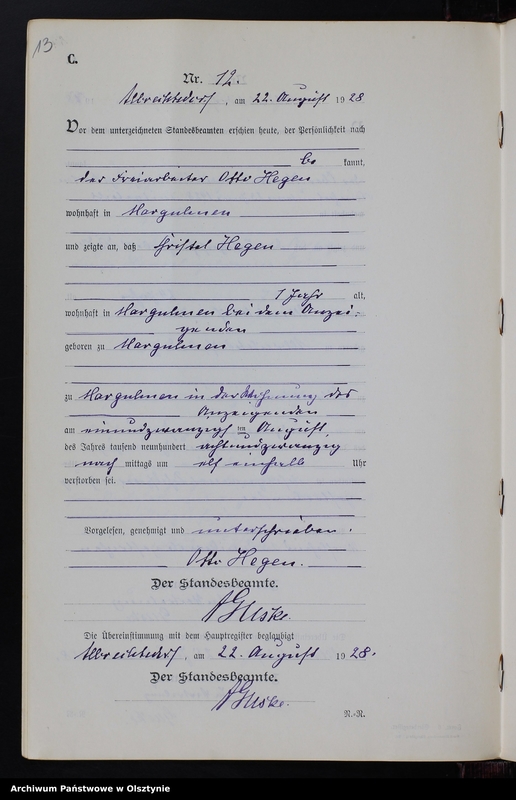 13
C.
Nr. 12.
Albrechtsdorf, am 22. August 1928
Vor dem unterzeichneten Standesbeamten erschien heute, der Persönlichkeit nach
be kannt,
der Freiarbeiter Otto Hegen
wohnhaft in Margulmen
und zeigte an, daß Christel Hegen
1 Jahr alt,
wohnhaft in Margulmen bei dem Anzei-
genden
geboren zu Margulmen
zu Margulmen in der Wohnung des
Anzeigenden
am einundzwanzigst en August
des Jahres tausend neunhundert achtundzwanzig
nach mittags um elf einhalb Uhr
verstorben sei.
Vorgelesen, genehmigt und unterschrieben.
Otto Hegen.
Der Standesbeamte.
Die Übereinstimmung mit dem Hauptregister beglaubigt
Albrechtsdorf, am 22. August 1928.
Der Standesbeamte.
N.-N.
Archiwum Państwowe w Olsztynie